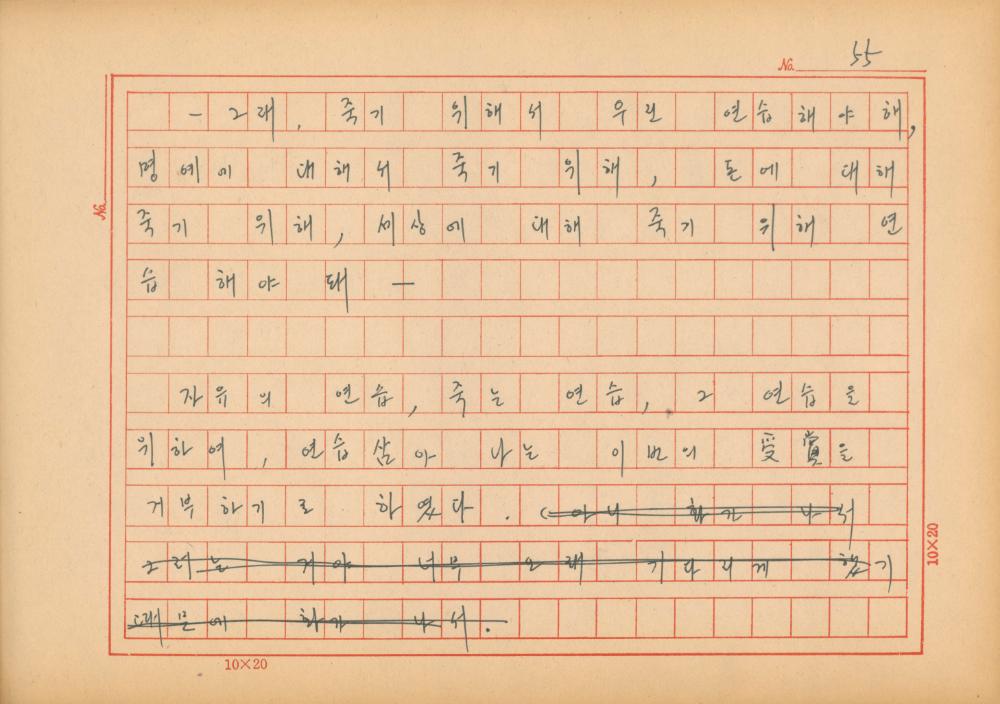 No. 55
- 그래, 죽기 위해서 우린 연습해야 해,
명예에 대해서 죽기 위해, 돈에 대해
죽기 위해, 세상에 대해 죽기 위해 연
습 해야 돼 —
자유의 연습, 죽는 연습, 그 연습을
위하여, 연습삼아 나는 이번의 受賞을
거부하기로 하였다. (아니 화가 나서
그러는 거야 너무 오래 기다리게 했기
때문에 화가 나서.
No.
10×20
10×20